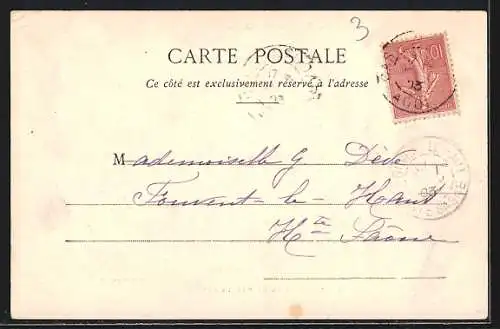 3
CARTE POSTALE
Ce côté est exclusivement réservé à l'adresse
10
Mademoiselle G Dède
Fouvent-le-Haut
Hte Saône